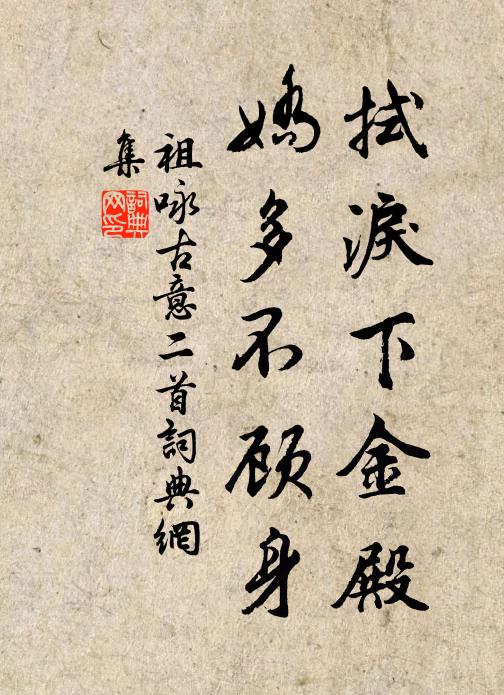 拭淚下金殿
嬌多不顧身
祖咏古意二首詞典網
集
詞典
网印